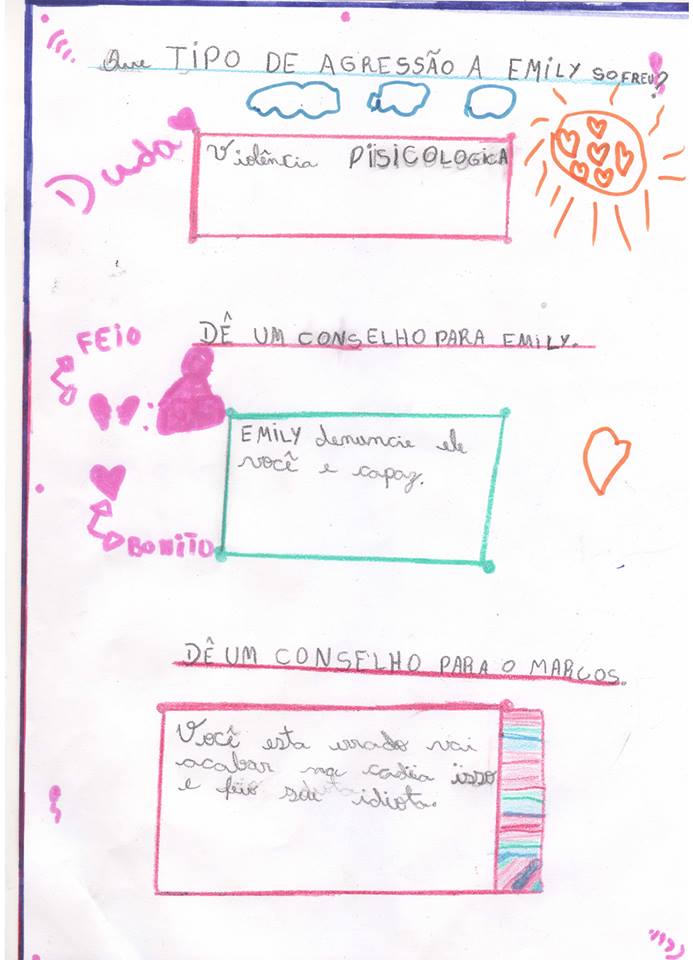 Que TIPO DE AGRESSÃO A EMILY SOFREU?
Duda
Violência PISICOLOGICA
FEIO
DÊ UM CONSELHO PARA EMILY.
EMILY denuncie ele
você e capaz.
BONITO
DÊ UM CONSELHO PARA O MARCOS.
Você esta errado vai
acabar na cadeia isso
e feio seu idiota.